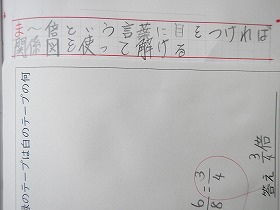 ま〜倍という言葉に目をつければ
関係図を使って解ける
のテープは白のテープの何
6/8=3/4
答え 3/4倍